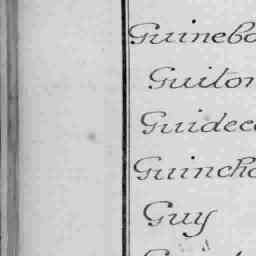 Guinebo
Guiton
Guidec
Guincho
Guy